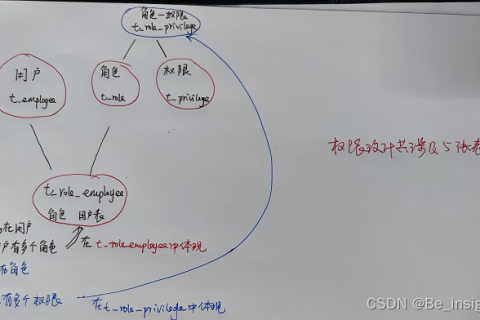 角色一权限
t_role_privilege
用户
t_employee
角色
t_role
权限
t_privilege
权限设计共涉及5张表
t_role_employee
角色 用户表
在用户
户有多个角色
在 t_role_employee中体现
在角色
有多个权限
在t_role_privilege中体现
CSDN @Be_insig